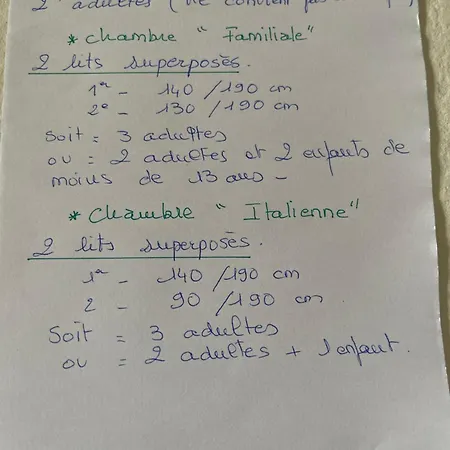 2 adultes (ne convient pas
* Chambre " Familiale"
2 lits superposés.
1er - 140 /190 cm
2e - 130 /190 cm
Soit = 3 adultes
ou = 2 adultes et 2 enfants de
moins de 13 ans -
* Chambre " Italienne"
2 lits superposés.
1er - 140 /190 cm
2 - 90 /190 cm
Soit = 3 adultes
ou = 2 adultes + 1 enfant.